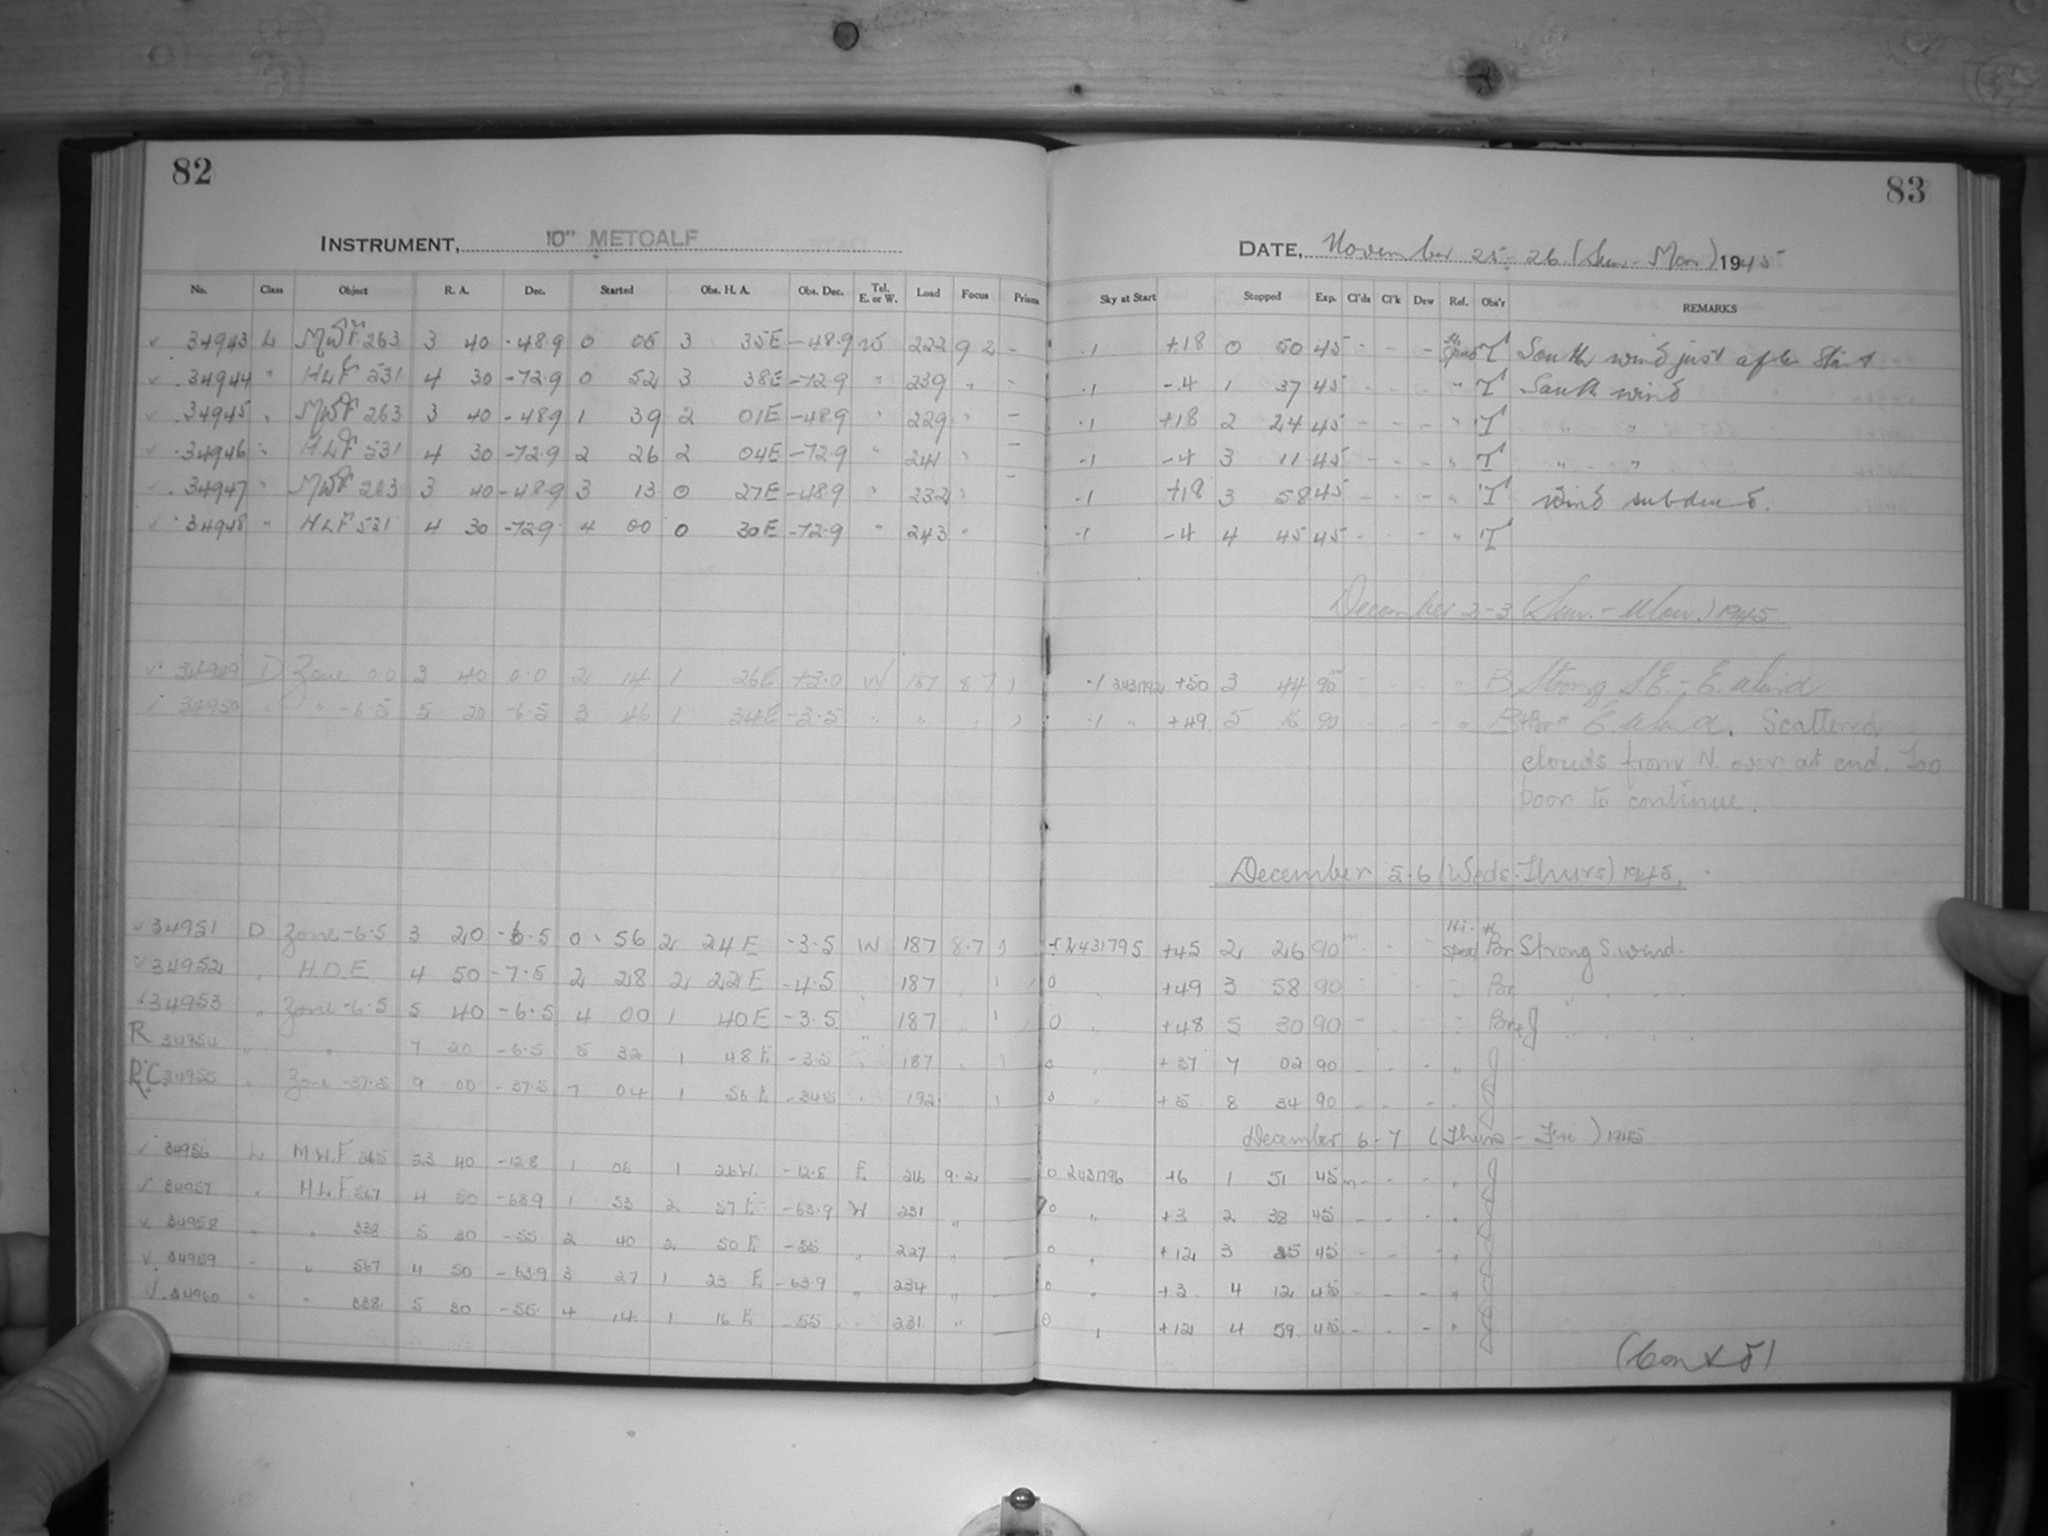 82
INSTRUMENT, 10" METCALF
No. Class Object R. A. Dec. Started Obs. H. A. Obs. Dec. Tel. E. or W. Load Focus Prism
✓ 34943 L MWF 263 3 40 -48.9 0 05 3 35E -48.9 W 222 9.2 -
✓ 34944 " HLF 531 4 30 -72.9 0 52 3 38E -72.9 " 239 " -
✓ 34945 " MWF 263 3 40 -48.9 1 39 2 01E -48.9 " 229 " -
✓ 34946 " HLF 531 4 30 -72.9 2 26 2 04E -72.9 " 241 " -
✓ 34947 " MWF 263 3 40 -48.9 3 13 0 27E -48.9 " 232 " -
✓ 34948 " HLF 531 4 30 -72.9 4 00 0 30E -72.9 " 243 "
✓ 34949 D Zone 0.0 3 40 0.0 2 14 1 26E +3.0 W 187 8.7 )
34950 " " -6.5 5 20 -6.5 3 46 1 34E -3.5 " " " )
✓ 34951 D Zone -6.5 3 20 -6.5 0 56 2 24E -3.5 W 187 8.7 )
✓ 34952 " H.D.E 4 50 -7.5 2 28 2 22E -4.5 187 "
✓ 34953 " Zone -6.5 5 40 -6.5 4 00 1 40E -3.5 187 "
R 34954 " " 7 20 -6.5 5 32 1 48E -3.5 " 187 "
R.C. 34955 " Zone -37.5 9 00 -37.5 7 04 1 56E -34.5 " 192
✓ 34956 L M.W.F 265 23 40 -12.8 1 06 1 26W -12.8 E 216 9.2 —
✓ 34957 " H.L.F. 567 4 50 -63.9 1 53 2 57E -63.9 W 231 " —
✓ 34958 " " 338 5 30 -55 2 40 2 50E -55 " 227 " —
✓ 34959 " " 567 4 50 -63.9 3 27 1 23E -63.9 " 234 " —
✓ 34960 " " 338 5 30 -55 4 14 1 16E -55 " 231 " —
83
DATE, November 25-26 (Sun-Mon) 1945
Sky at Start Stopped Exp. Cl'ds Cl'k Dew Ref. Obs'r REMARKS
.1 +18 0 50 45 - - - Hi Speed T South wind just after start.
.1 -4 1 37 45 - - - " T South wind
.1 +18 2 24 45 - - - " T " "
.1 -4 3 11 45 - - - " T " "
.1 +18 3 58 45 - - - " T Wind subdued.
.1 -4 4 45 45 - - - " T
December 2-3 (Sun.-Mon.) 1945
.1 2431792 +50 3 44 90m - - - " B Strong S.E.-E. wind
.1 " +49 5 16 90 - - - " B+Por E. wind. Scattered
clouds from N. over at end. Too
poor to continue.
December 5-6 (Weds-Thurs) 1945.
2431795 +45 2 26 90m - - Hi-Speed Por Strong S. wind.
0 " +49 3 58 90 - - " Por " " "
0 " +48 5 30 90 - - - " Por+J " " "
0 " +37 7 02 90 - - - " J
0 " +5 8 34 90 - - - " J
December 6-7 (Thurs-Fri) 1945
0 2431796 +6 1 51 45m - - - " J
0 " +3 2 38 45 - - - " J
0 " +12 3 25 45 - - - " J
0 " +3 4 12 45 - - - " J
0 " +12 4 59 45 - - - " J
(Contd)